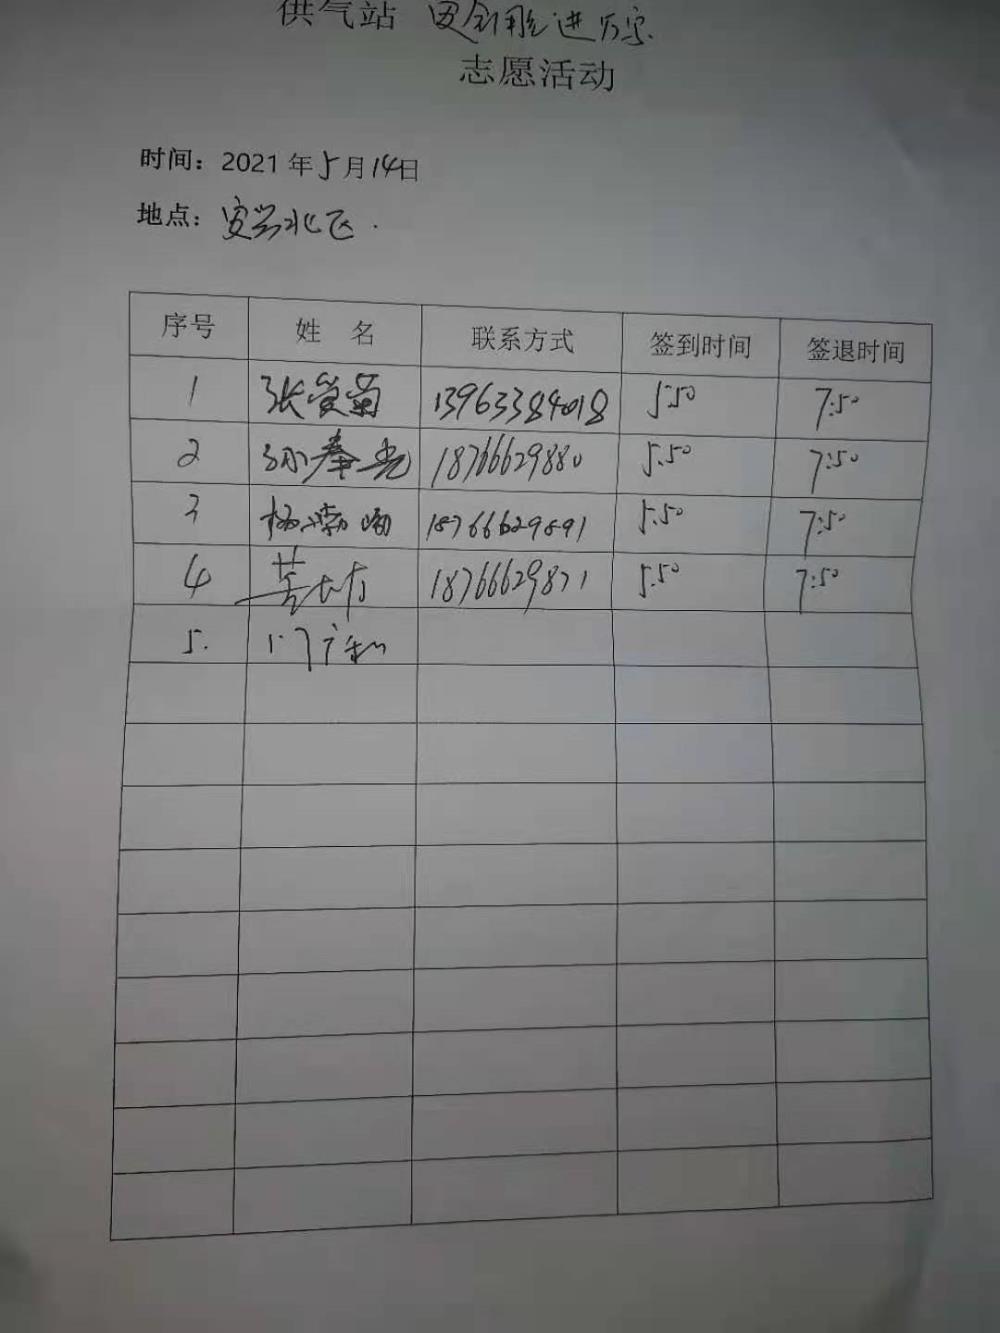 供气站 进万家
志愿活动
时间：2021年5月14日
地点：安兴北区.
序号 姓 名 联系方式 签到时间 签退时间
1 张爱菊 13963384018 5:50 7:50
2 孙奉光 18766629880 5:50 7:50
3 杨 18766629891 5:50 7:50
4 18766629871 5:50 7:50
5. 门广和